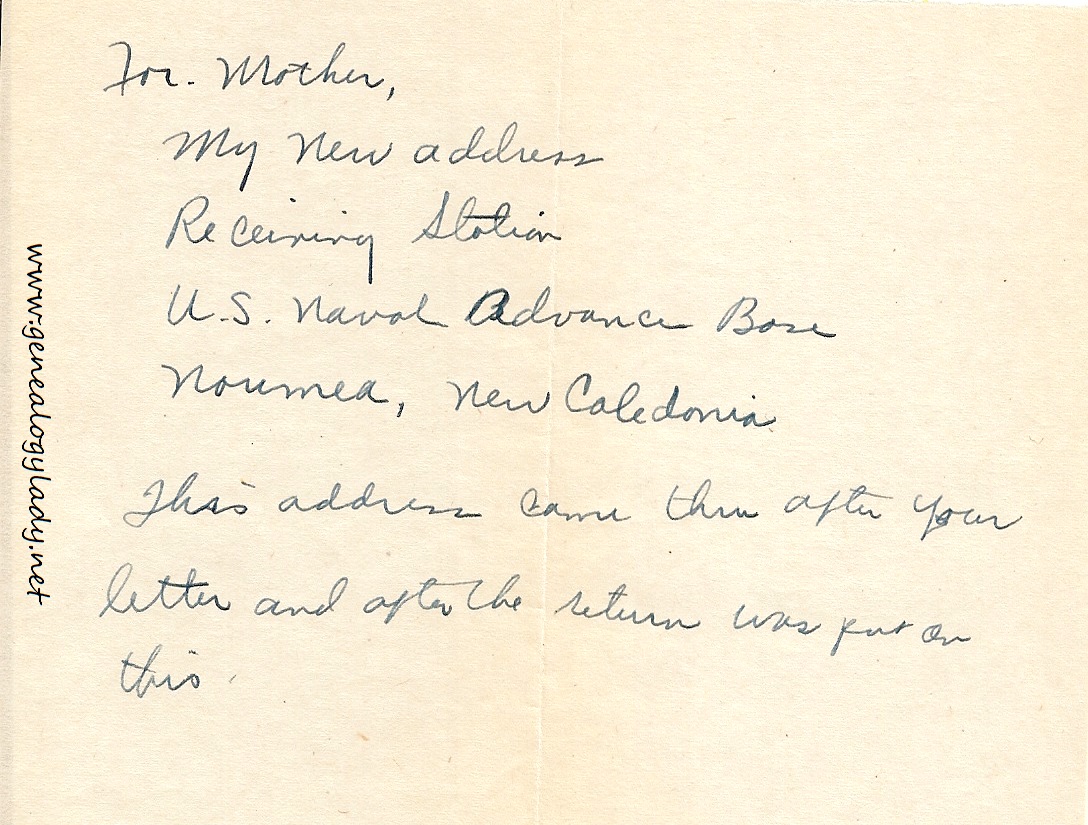 For. Mother,
My New address
Receiving Station
U.S. Naval Advance Base
Noumea, New Caledonia
This address came thru after your
letter and after the return was put on
this.
www.genealogylady.net